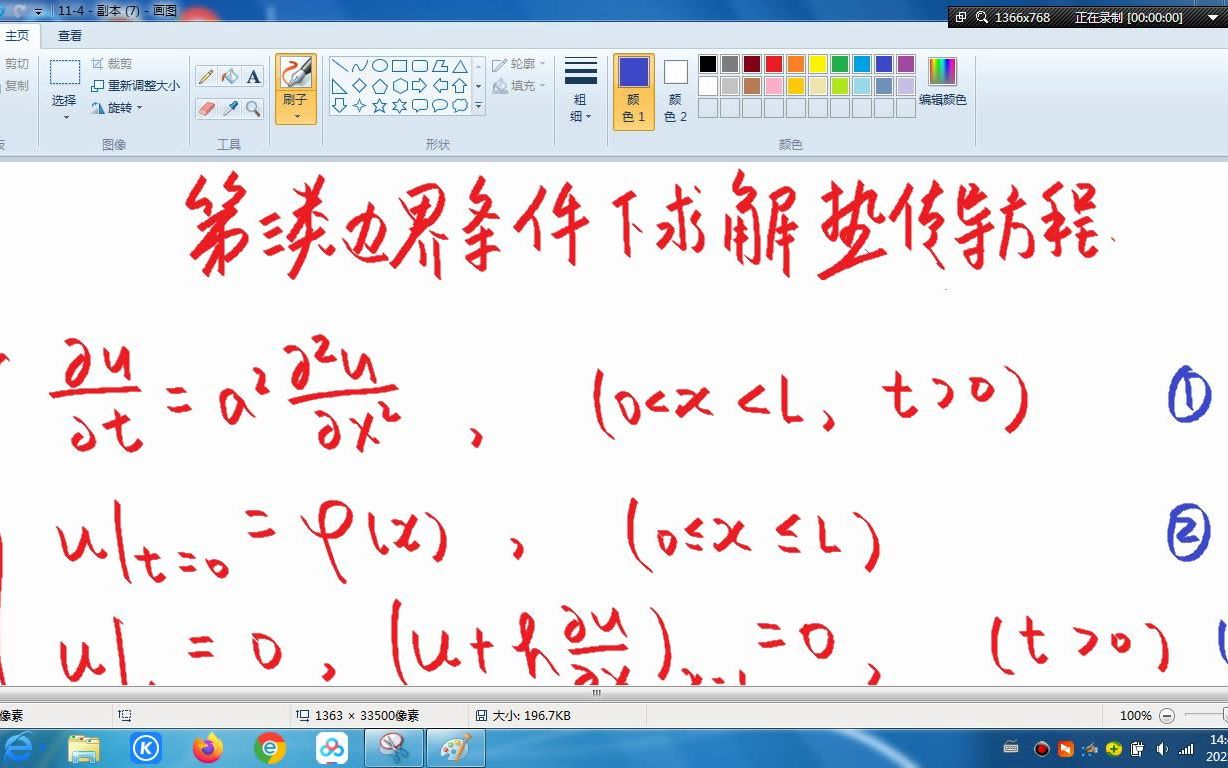 11-4 - 副本 (7) - 画图
1366x768 正在录制 [00:00:00]
主页 查看
剪切
复制
选择
裁剪
重新调整大小
旋转
图像
A
工具
刷子
轮廓
填充
形状
粗细
颜色 1
颜色 2
编辑颜色
颜色
第三类边界条件下求解热传导方程.
∂u/∂t = a² ∂²u/∂x² , (0<x<L, t>0) ①
u|t=0 = φ(x) , (0≤x≤L) ②
u| = 0 , (u+h ∂u/∂x) = 0 , (t>0)
像素 1363 × 33500像素 大小: 196.7KB 100%
K
14:
202